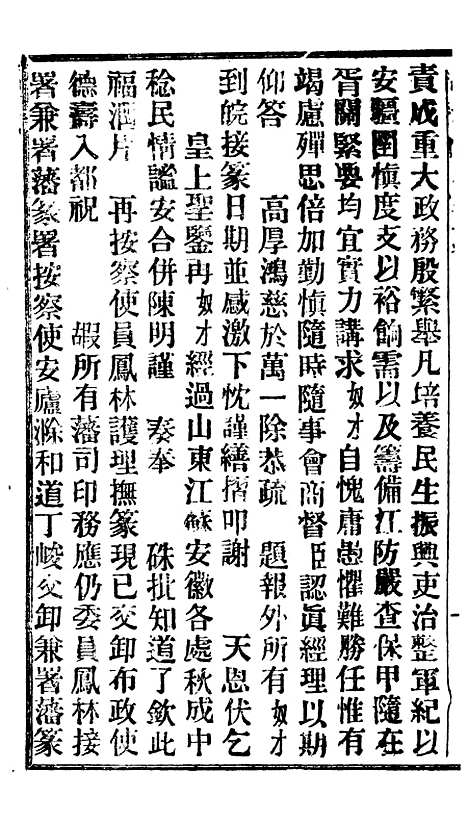 責成重大政務殷繁舉凡培養民生振興吏治整軍紀以
安疆圉慎度支以裕餉需以及籌備江防嚴查保甲隨在
胥關緊要均宜實力講求奴才自愧庸愚懼難勝任惟有
竭慮殫思倍加勤慎隨時隨事會商督臣認眞經理以期
仰答 高厚鴻慈於萬一除恭疏 題報外所有奴才
到皖接篆日期並感激下忱謹繕摺叩謝 天恩伏乞
皇上聖鑒再奴才經過山東江蘇安徽各處秋成中
稔民情謐安合併陳明謹 奏奉 硃批知道了欽此
福潤片 再按察使員鳳林護理撫篆現已交卸布政使
德壽入都祝 嘏所有藩司印務應仍委員鳳林接
署兼署藩篆署按察使安廬滁和道丁峻交卸兼署藩篆